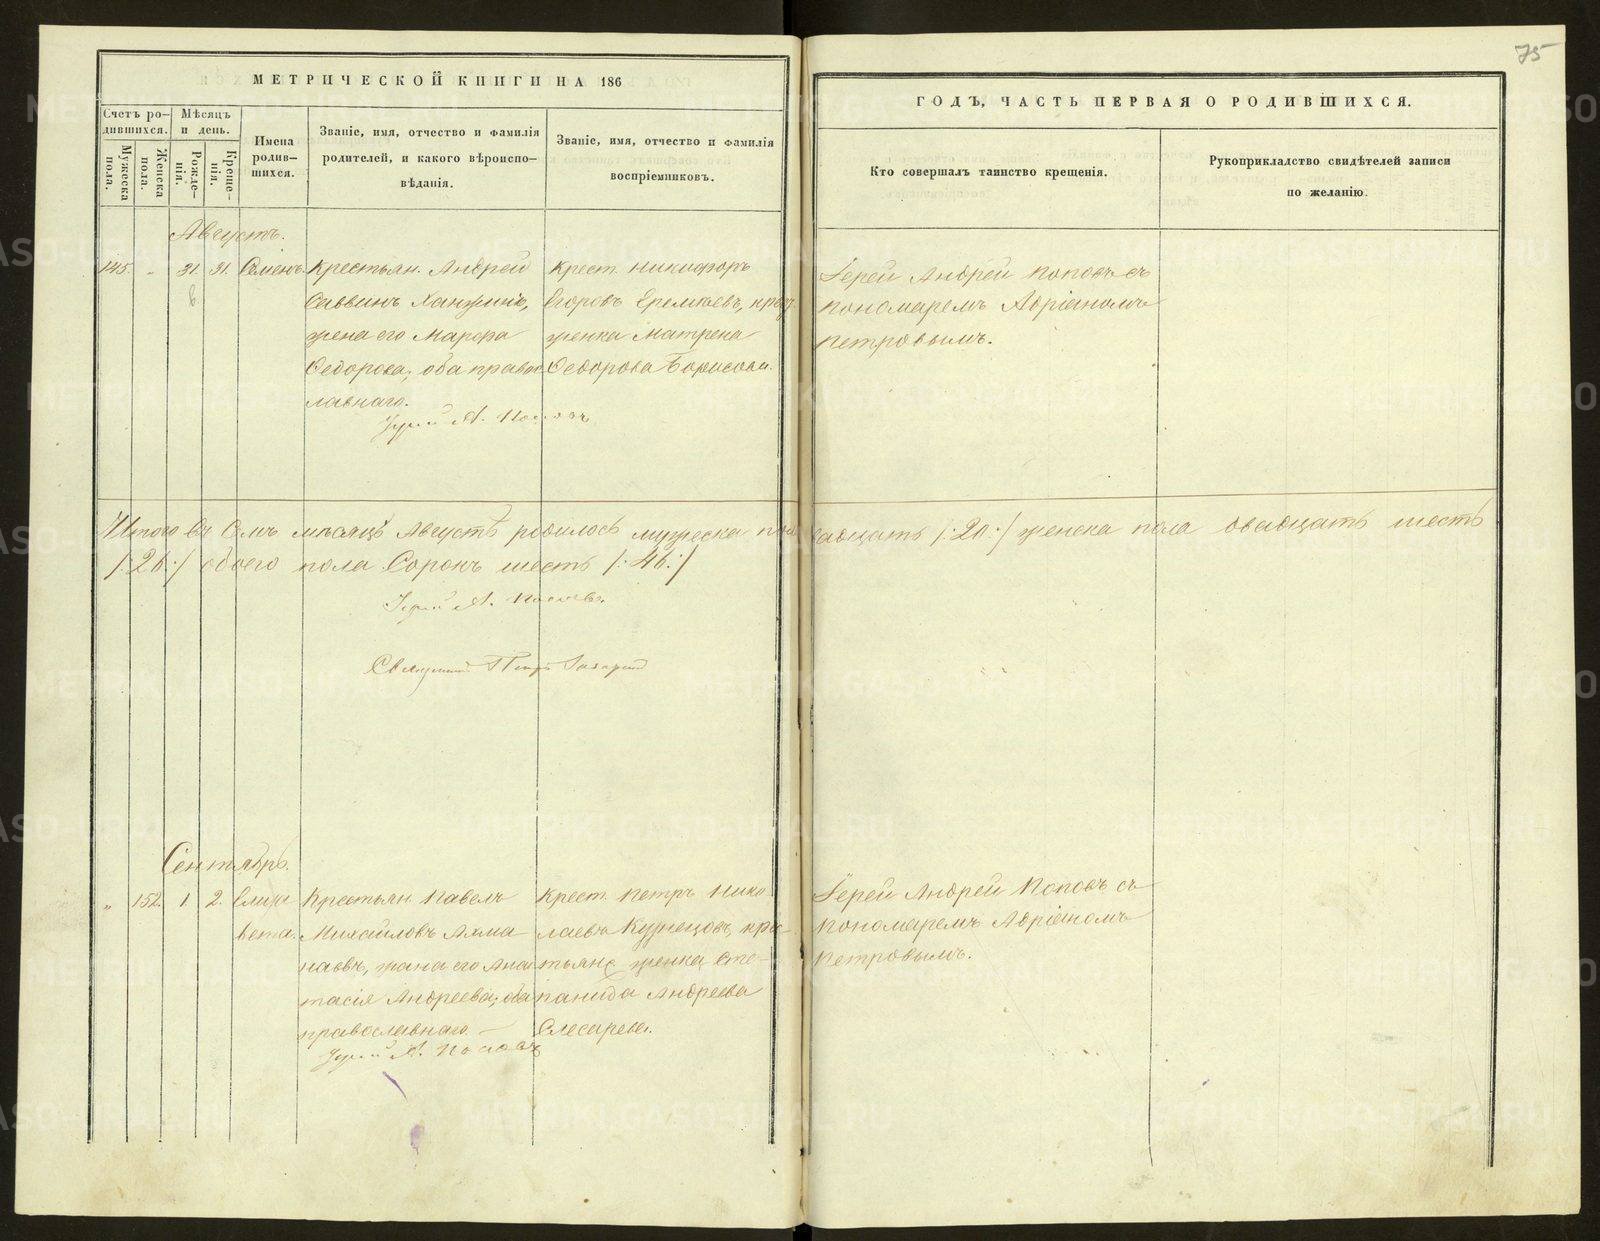 75
МЕТРИЧЕСКОЙ КНИГИ НА 186
ГОДЪ, ЧАСТЬ ПЕРВАЯ О РОДИВШИХСЯ.
Счетъ ро-
дившихся.
Мужеска
пола.
Женска
пола.
Мѣсяцъ
и день.
Рожде-
нія.
Креще-
нія.
Имена
родив-
шихся.
Званіе, имя, отчество и фамилія
родителей, и какого вѣроиспо-
вѣданія.
Званіе, имя, отчество и фамилія
воспріемниковъ.
Кто совершалъ таинство крещенія.
Рукоприкладство свидѣтелей записи
по желанію.
Августъ.
145. " 31. 31. Семенъ.
Крестьян. Андрей
Саввинъ Ханжинъ,
жена его Марфа
Ѳедорова; оба правос
лавнаго.
Іерей А. Поповъ
Крест. Никифоръ
Егоровъ Еремѣевъ, крес.
женка Матрена
Ѳедорова Борисова.
Іерей Андрей Поповъ съ
пономаремъ Адріаномъ
Петровымъ.
Итого въ семъ мѣсяцѣ Августѣ родилось мужеска пола двадцать /:20:/ женска пола двадцать шесть
/:26:/ обоего пола Сорокъ шесть /:46:/
Іерей А. Поповъ.
Священникъ Петръ
Сентябрь.
" 152. 1 2. Елиза
вета.
Крестьян. Павелъ
Михайловъ Ахма
наевъ, жена его Анас
тасія Андреева; оба
православнаго. —
Іерей А. Поповъ
Крест. Петръ Нико
лаевъ Кузнецовъ, крес-
тьянс женка Сте-
панида Андреева
Слесарева.
Іерей Андрей Поповъ съ
пономаремъ Адріаномъ
Петровымъ.
METRIKI.GASO-URAL.RU